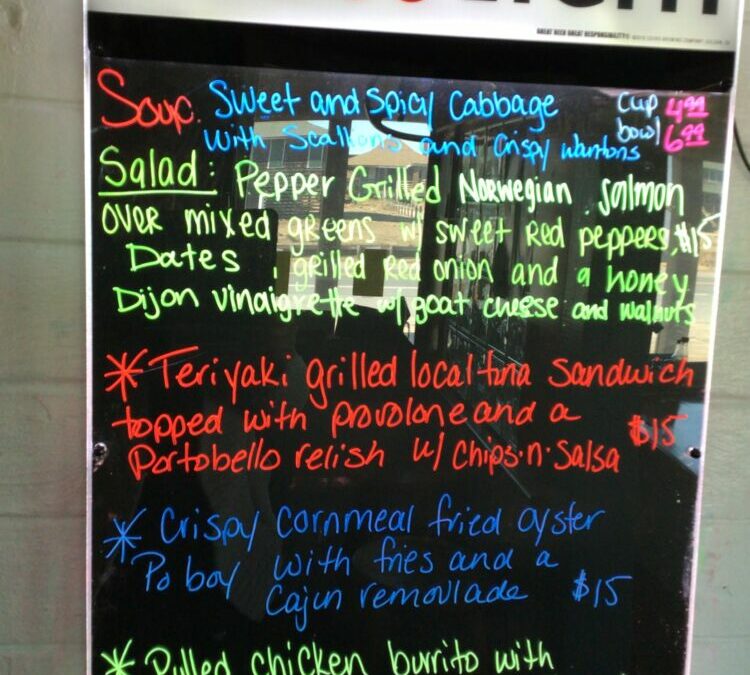 GREAT BEER GREAT RESPONSIBILITY
Soup. Sweet and Spicy Cabbage cup 4.99
With Scallions and Crispy wantons bowl 6.99
Salad: Pepper Grilled Norwegian Salmon
over mixed greens w/ sweet Red peppers, $15
Dates, grilled Red onion and a honey
Dijon vinaigrette w/ goat cheese and walnuts
* Teriyaki grilled local tuna sandwich
topped with provolone and a
Portobello relish w/ Chips.n.Salsa $15
* Crispy cornmeal fried oyster
Po boy with fries and a
Cajun remoulade $15
* Pulled chicken burrito with